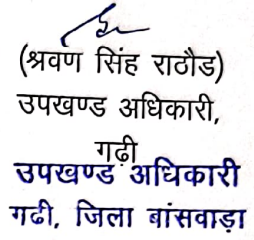 (श्रवण सिंह राठौड)
उपखण्ड अधिकारी,
गढ़ी
उपखण्ड अधिकारी
गढी, जिला बांसवाड़ा